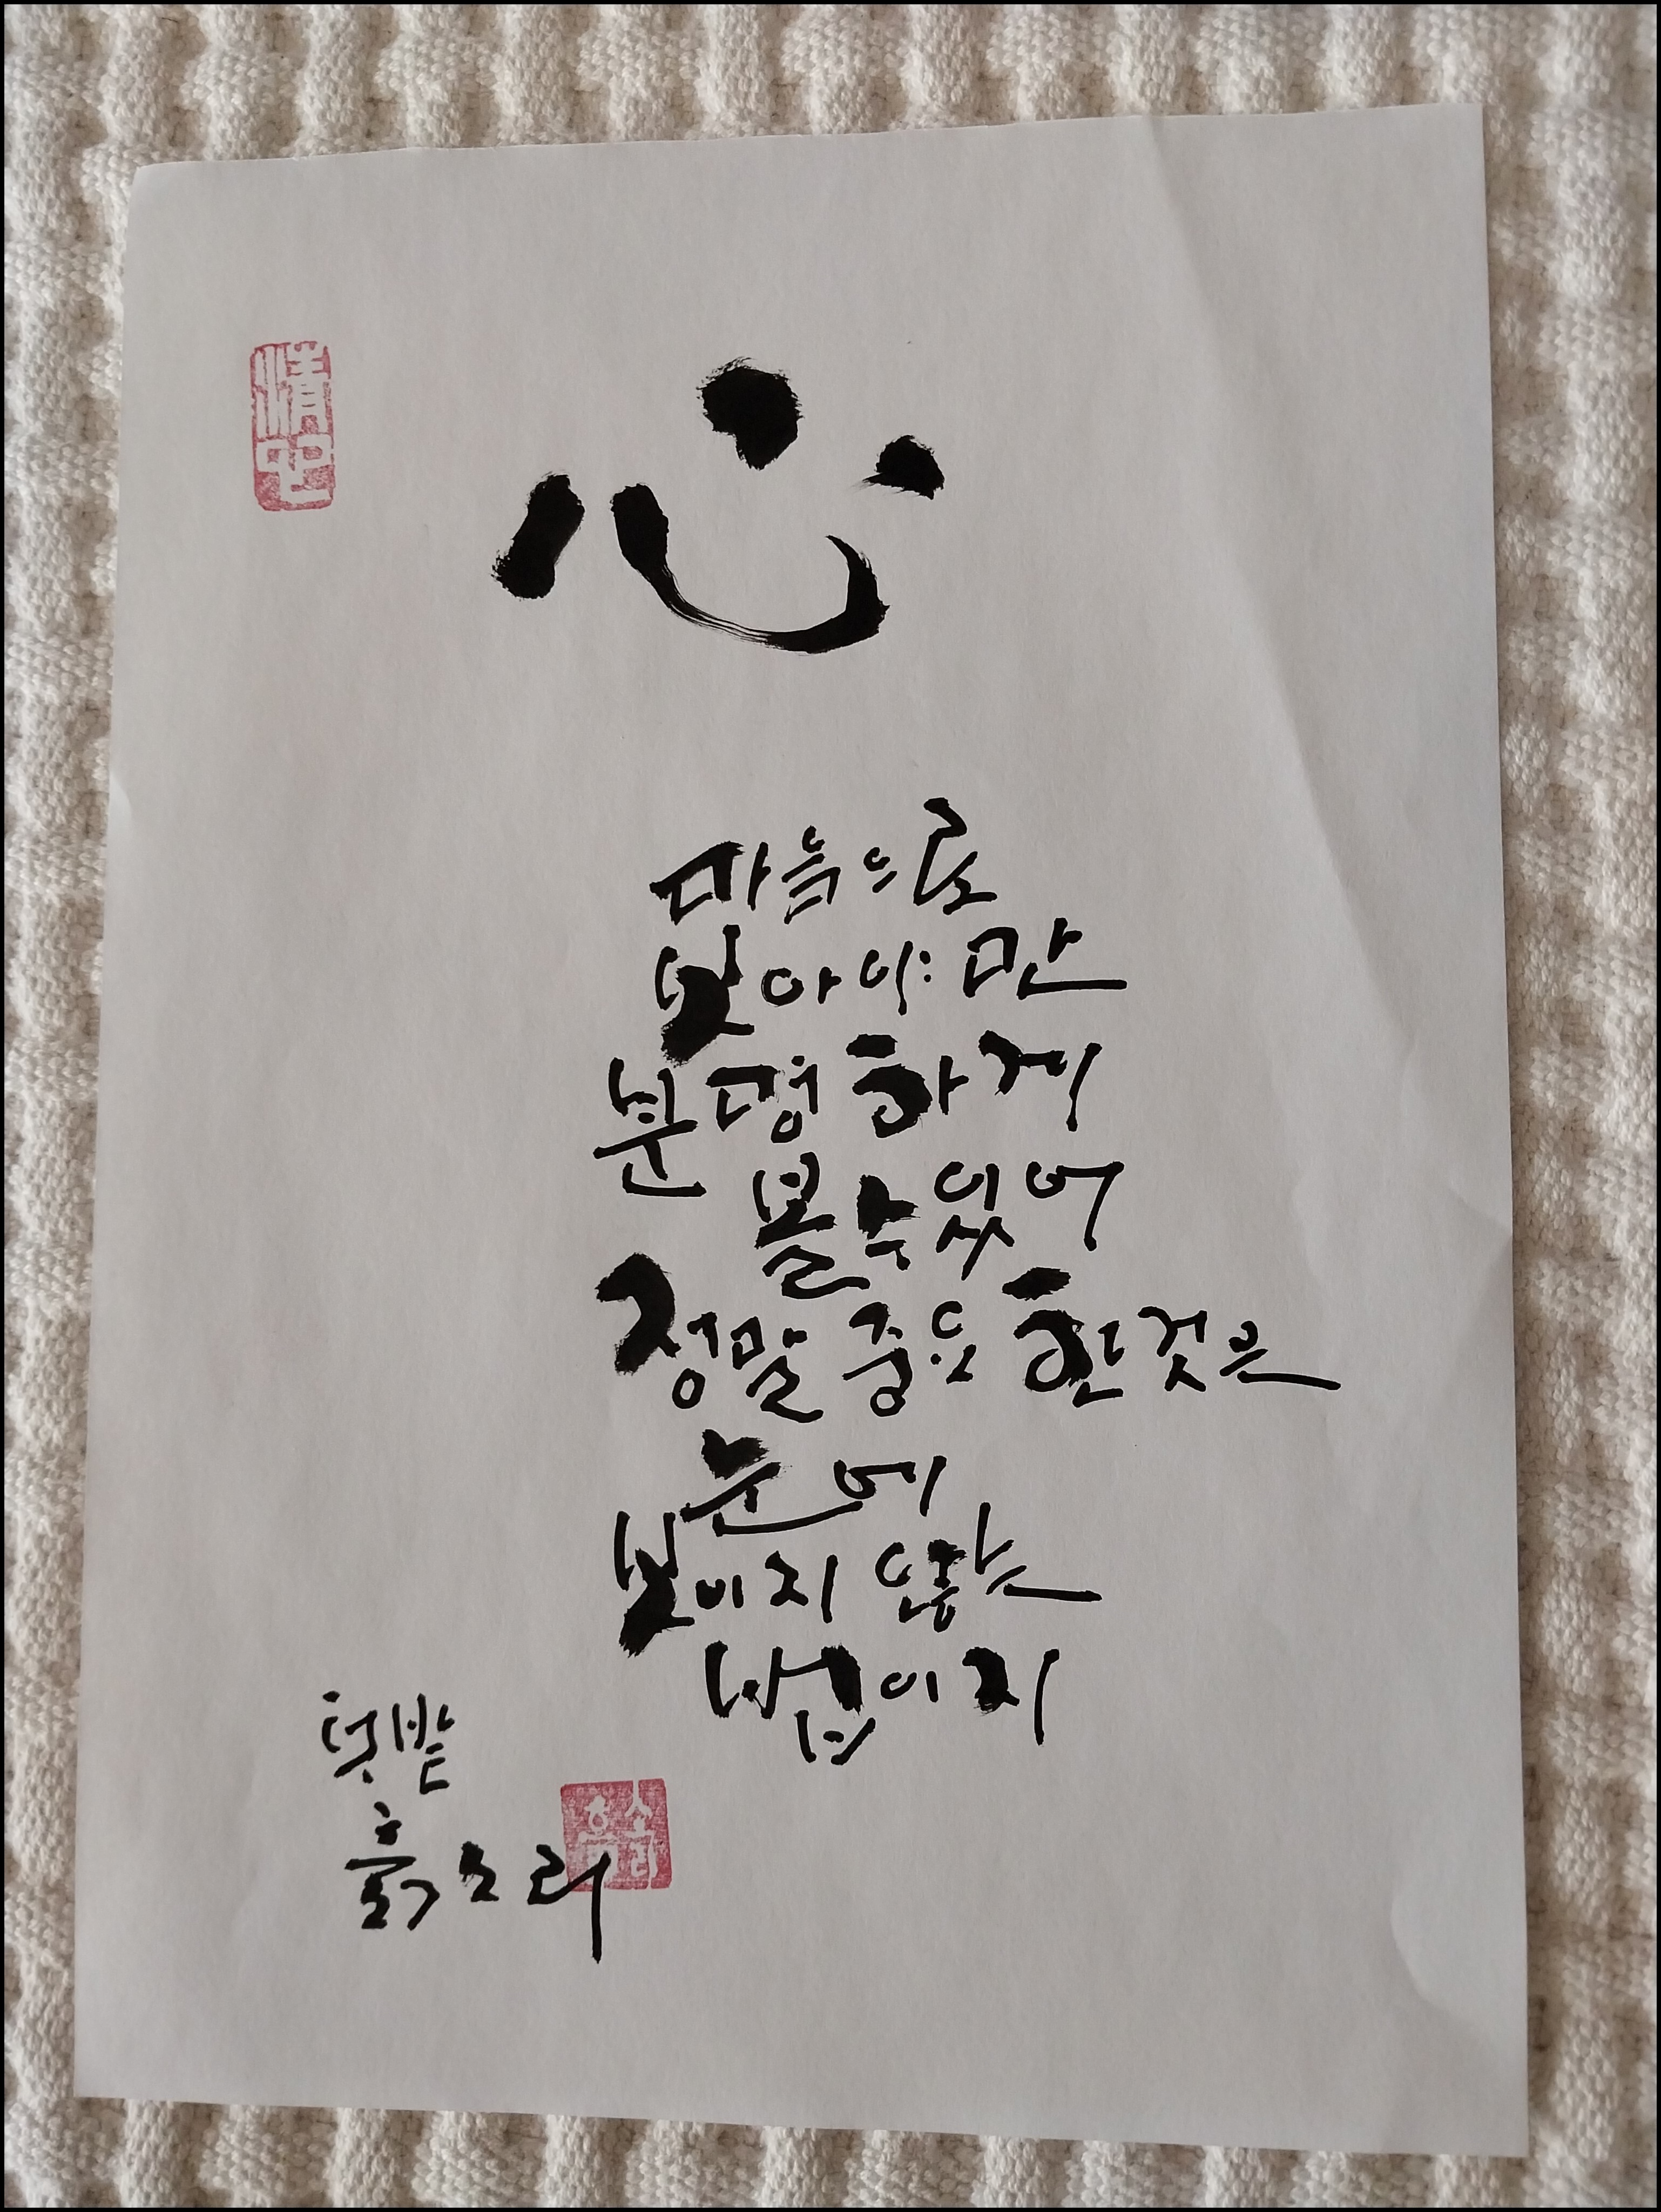 心
마음으로
보아야만
분명하게
볼수있어
정말 중요한것은
눈에
보이지 않는
법이지
텃밭
흙소리